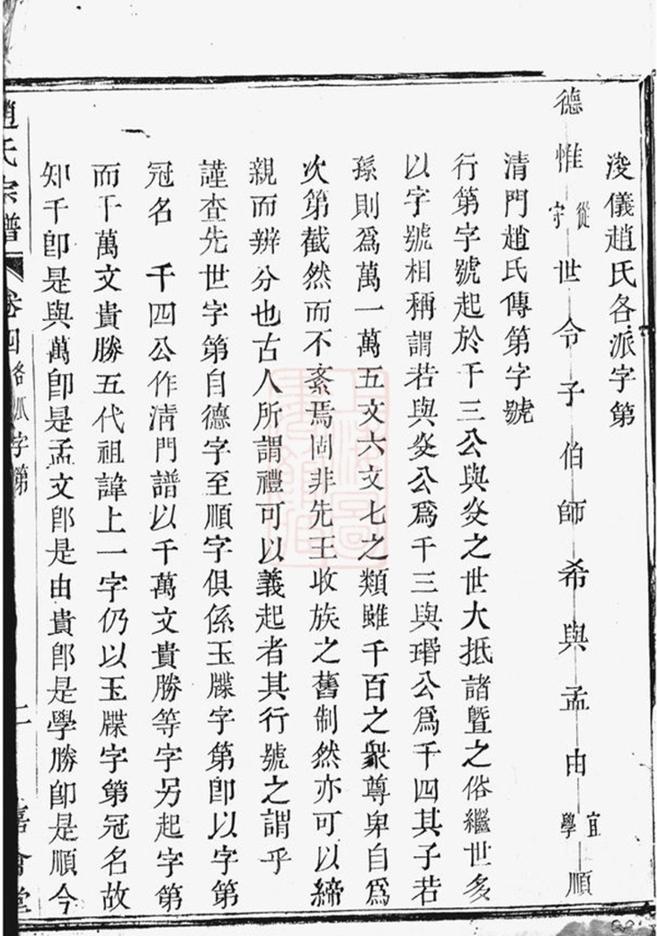 浚儀趙氏各派字第
德惟從守世令子伯師希與孟由宜學順
清門趙氏傳第字號
行第字號起於千三公與炎之世大抵諸暨之俗繼世多
以字號相稱謂若與炎公爲千三與瑨公爲千四其子若
孫則爲萬一萬五文六文七之類雖千百之衆尊卑自爲
次第截然而不紊焉固非先王收族之舊制然亦可以締
親而辨分也古人所謂禮可以義起者其行號之謂乎
謹查先世字第自德字至順字俱係玉牒字第卽以字第
冠名 千四公作淸門譜以千萬文貴勝等字另起字第
而千萬文貴勝五代祖諱上一字仍以玉牒字第冠名故
知千卽是與萬卽是孟文卽是由貴卽是學勝卽是順今
趙氏宗譜 卷四 各派字第 二 嘉會堂